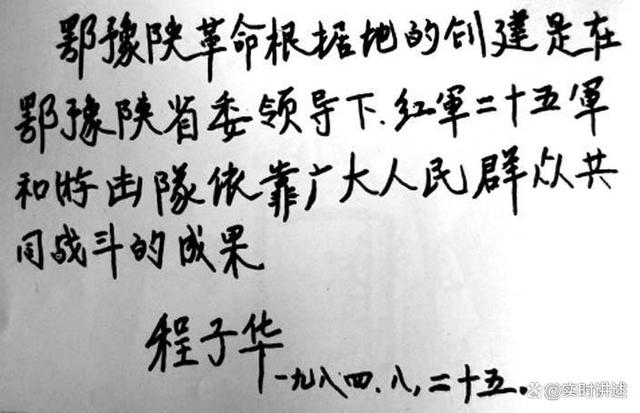 鄂豫陕革命根据地的创建是在
鄂豫陕省委领导下.红軍二十五軍
和游击隊依靠广大人民群众共
同战斗的成果
程子华
一九八四.八,二十五.
@实时讲述